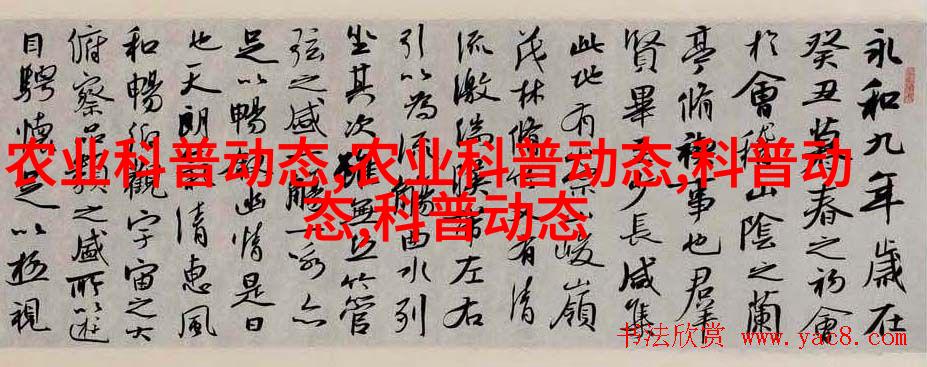 农业科普动态,农业科普动态,科普动
态,科普动态
永和九年歲在
癸丑暮春之初會
於會稽山陰之蘭
亭脩禊事也羣
賢畢至少長咸集
此地有崇山峻嶺
茂林脩竹又有清
流激湍暎帶左右
引以為流觴曲水列
坐其次雖無絲竹管
弦之盛一觴一詠亦
足以暢敘幽情是日
也天朗氣清惠風
和暢仰觀宇宙之大
俯察品類之盛所以遊
目騁懷足以極視
书法欣赏 www.yac8.com